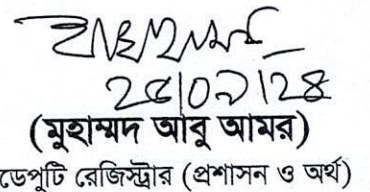 ২৫/০৯/২৪
(মুহাম্মদ আবু আমর)
ডেপুটি রেজিস্ট্রার (প্রশাসন ও অর্থ)